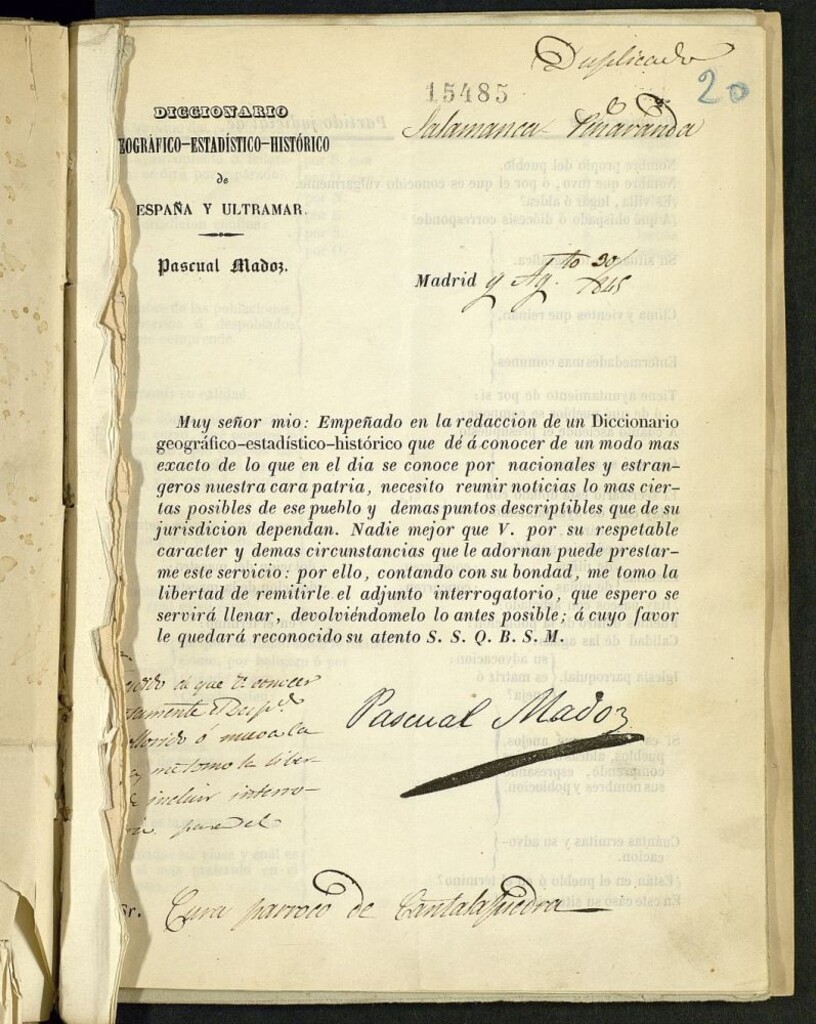 Duplicado
15485
20
Salamanca Peñaranda
DICCIONARIO
EOGRÁFICO-ESTADÍSTICO-HISTÓRICO
de
ESPAÑA Y ULTRAMAR.
Pascual Madoz.
Madrid y Ag.to 30/1845
Muy señor mio: Empeñado en la redaccion de un Diccionario
geográfico-estadístico-histórico que dé á conocer de un modo mas
exacto de lo que en el dia se conoce por nacionales y estran-
geros nuestra cara patria, necesito reunir noticias lo mas cier-
tas posibles de ese pueblo y demas puntos descriptibles que de su
jurisdicion dependan. Nadie mejor que V. por su respetable
caracter y demas circunstancias que le adornan puede prestar-
me este servicio: por ello, contando con su bondad, me tomo la
libertad de remitirle el adjunto interrogatorio, que espero se
servirá llenar, devolviéndomelo lo antes posible; á cuyo favor
le quedará reconocido su atento S. S. Q. B. S. M.
de que V. conocer
tamente el Desp.do
ó nueva la
me tomo la liber-
incluir interro-
para el
Pascual Madoz
Sr. Cura parroco de Cantalapiedra